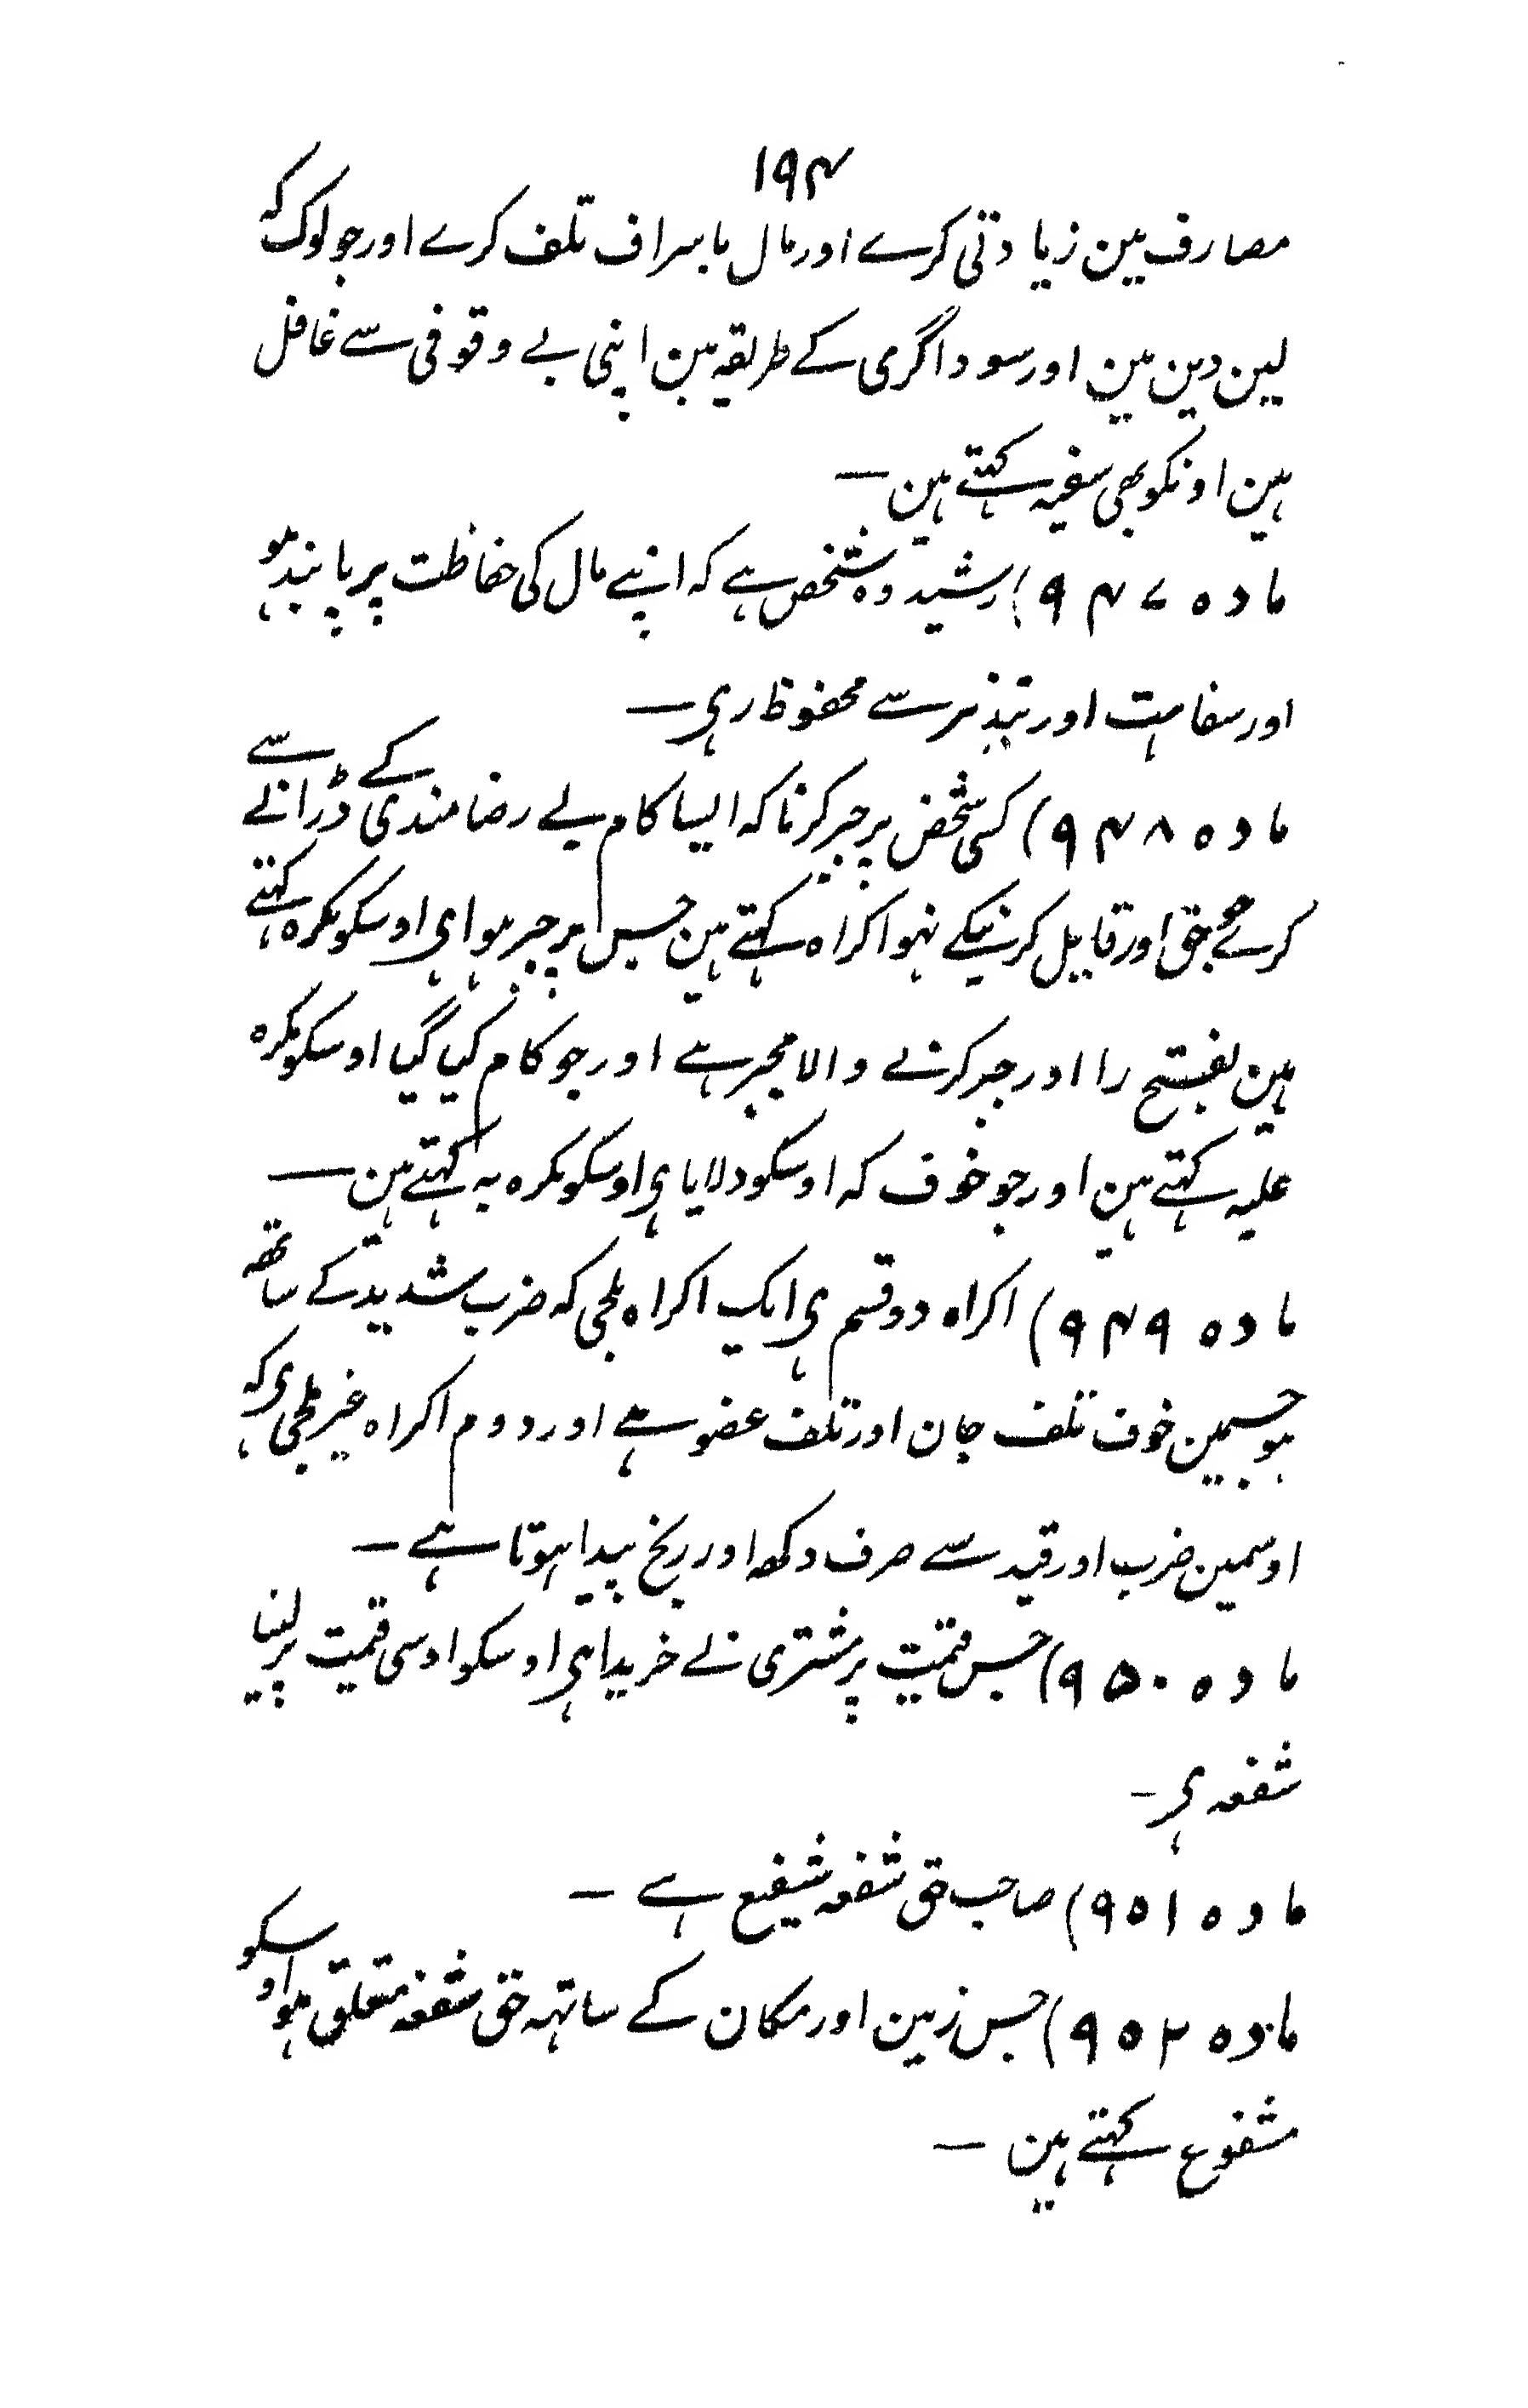 ۱۹۴
مصارف مین زیادتی کرے اور مال باسراف تلف کرے اور جو لوگ کہ
لین دین مین اور سوداگری کے طریقہ مین اپنی بے وقوفی سے غافل
ہین اونکو بھی سفیہ کہتے ہین —
مادہ ۹۴۷) رشید وہ شخص ہے کہ اپنے مال کی حفاظت پر پابند ہو
اور سفاہت اور تبذیر سے محفوظ رہی —
مادہ ۹۴۸) کسی شخص پر جبر کرنا کہ ایسا کام بے رضامندی کے ڈرانے سے
کرے حق اور قابل کرنیکے نہو اکراہ کہتے ہین جس پر جبر ہوا ہی اوسکو مکرہ کہتے
ہین بفتح را اور جبر کرنے والا مجبر ہے اور جو کام کیا گیا اوسکو مکرہ
علیہ کہتے ہین اور جو خوف کہ اوسکو دلایا ہی اوسکو مکرہ بہ کہتے ہین —
مادہ ۹۴۹) اکراہ دو قسم ہی ایک اکراہ ملجی کہ ضرب شدید کے ساتھ
ہو جسمین خوف تلف جان اور تلف عضو ہے اور دوم اکراہ غیر ملجی ہی کہ
اوسمین ضرب اور قید سے صرف دکھ اور رنج پیدا ہوتا ہے —
مادہ ۹۵۰) جس قیمت پر مشتری نے خریدا ہی اوسکو اوسی قیمت پر لینا
شفعہ ہی —
مادہ ۹۵۱) صاحب حق شفعہ شفیع ہے —
مادہ ۹۵۲) جس زمین اور مکان کے ساتہہ حق شفعہ متعلق ہو اوسکو
مشفوع کہتے ہین —